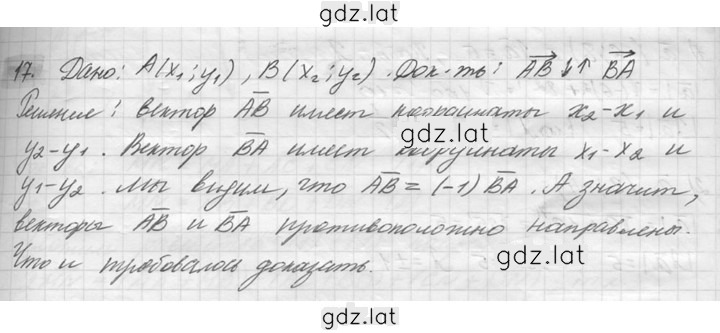 gdz.lat
17. Дано: A(x₁; y₁), B(x₂; y₂). Док-ть: AB ↓↑ BA
Решение: вектор AB имеет координаты x₂-x₁ и
gdz.lat
y₂-y₁. Вектор BA имеет координаты x₁-x₂ и
y₁-y₂. Мы видим, что AB = (-1) BA. А значит,
векторы AB и BA противоположно направлены.
gdz.lat
Что и требовалось доказать.
gdz.lat